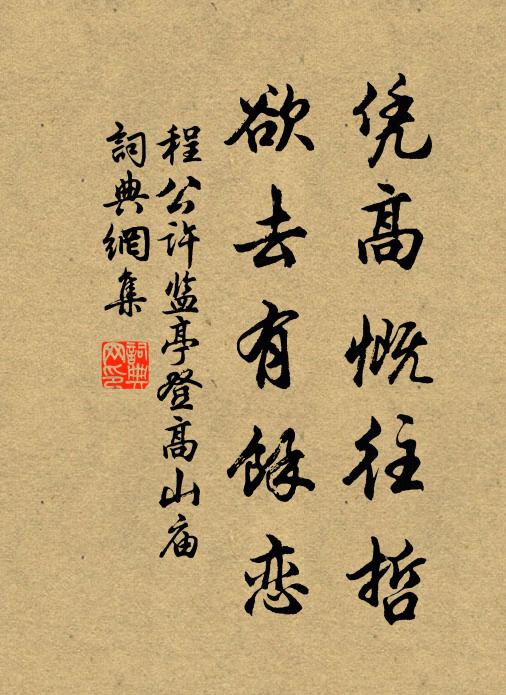 凭高慨往哲
欲去有馀恋
程公许监亭登高山庙
詞典網集
詞典网印